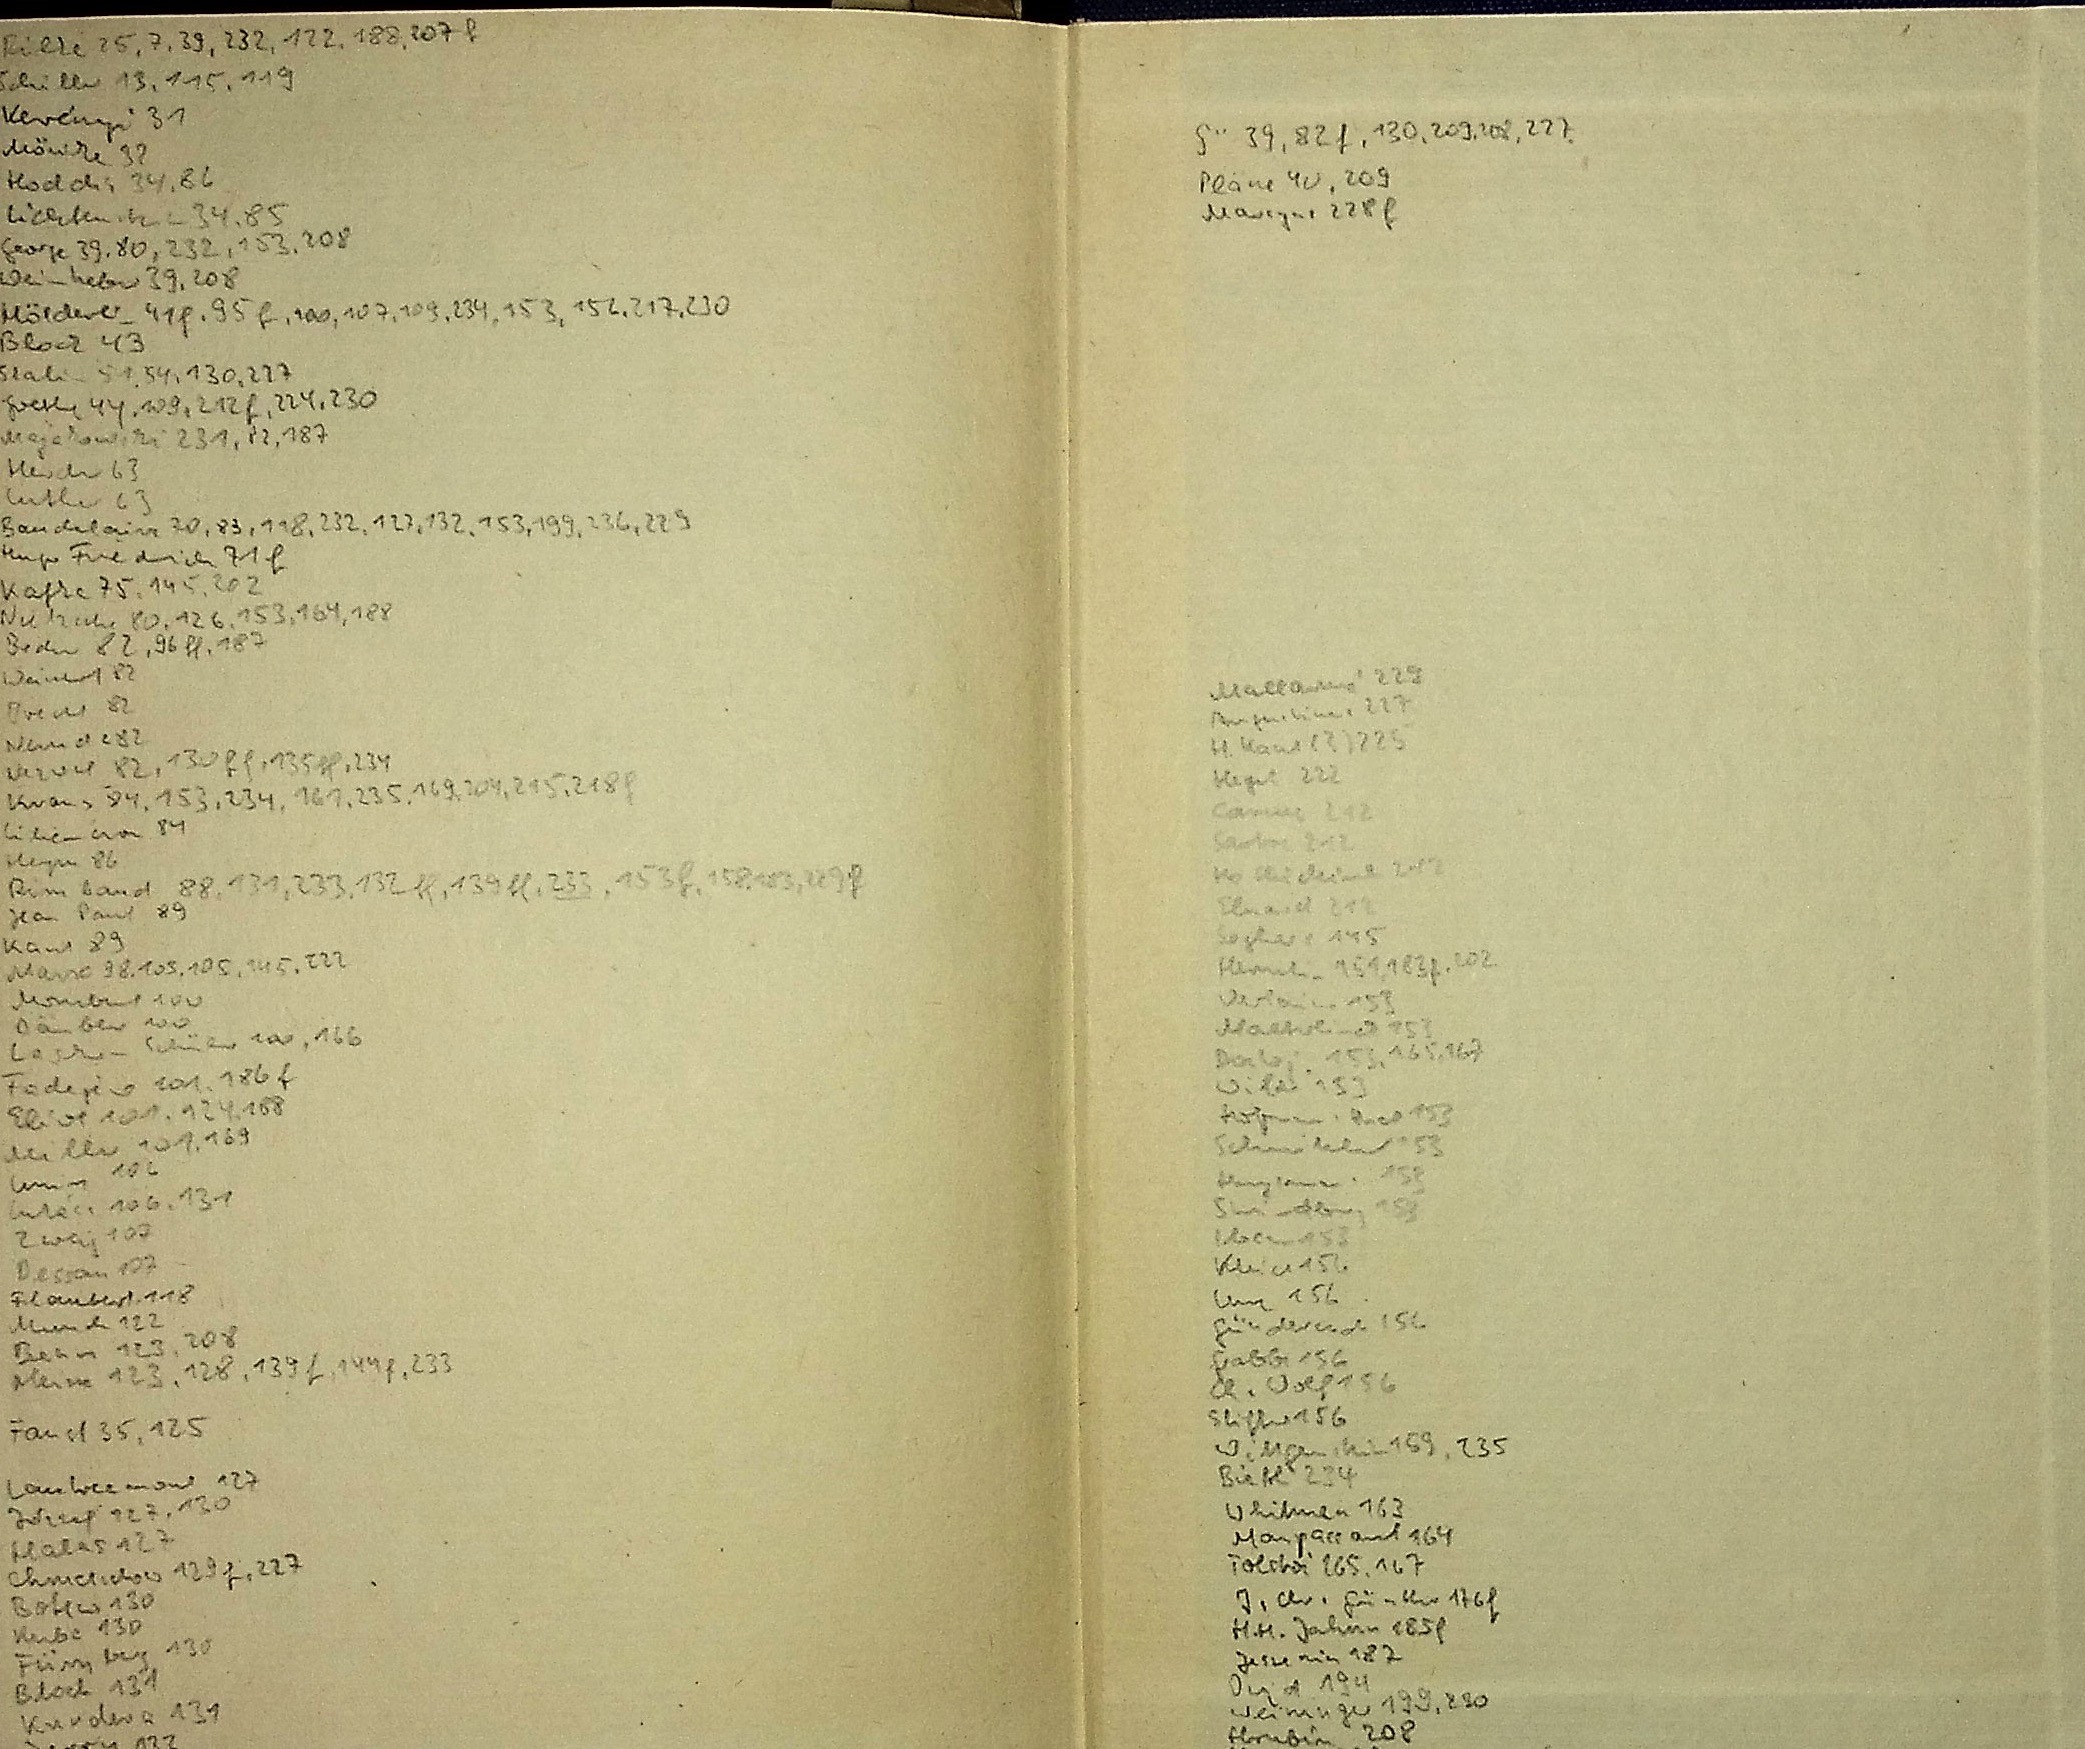 Rilke 25, 7, 39, 232, 122, 188, 207 f
Schiller 13, 115, 119
Kerényi 31
Mörike 32
Hoddis 34, 86
Lichtenstein 34, 85
George 39, 80, 232, 153, 208
Weinheber 39, 208
Hölderlin 41f, 95 f, 100, 107, 109, 234, 153, 156, 217, 230
Block 43
Stalin 51, 54, 130, 227
Goethe 44, 109, 212f, 224, 230
Majakowski 231, 82, 187
Herder 63
Luther 63
Baudelaire 70, 83, 118, 232, 127, 132, 153, 199, 236, 229
Hugo Friedrich 71 f
Kafka 75, 145, 202
Nietzsche 80, 126, 153, 164, 188
Becher 82, 96 ff, 187
Weinert 82
Brecht 82
Neruda 82
Nezval 82, 130 ff, 135 ff, 234
Kraus 84, 153, 234, 161, 235, 169, 204, 215, 218 f
Liliencron 84
Heym 86
Rimbaud 88, 131, 233, 132 ff, 139 ff, 233, 153 f, 158, 183, 229 f
Jean Paul 89
Kant 89
Marx 98, 105, 105, 145, 222
Mombert 100
Däubler 100
Lasker-Schüler 100, 166
Fadejew 101, 186 f
Eliot 101, 124, 188
Miller 101, 169
Lenin 106
Lukács 106, 131
Zweig 107
Dessau 107
Flaubert 118
Munch 122
Benn 123, 208
Heine 123, 128, 139 f, 144 f, 233
Faust 35, 125
Lautreamont 127
József 127, 130
Halas 127
Chmelnizki 129 f, 227
Botew 130
Kuba 130
Fürnberg 130
Bloch 131
Kundera 131
133
39, 82 f, 130, 209, 208, 227
Pläne 40, 209
228 f
Mallarmé 229
Augustinus 227
H. Kant (?) 225
Hegel 222
Camus 212
Sartre 212
212
Eluard 212
Seghers 145
Hermlin 151, 183 f, 202
Verlaine 153
Maeterlinck 153
153, 165, 167
Wilde 153
Hofmannsthal 153
Schnitzler 153
Huysmans 153
Strindberg 153
Ibsen 153
Kleist 156
Lenz 156
Günderode 156
Grabbe 156
Ch. Wolf 156
Stifter 156
Wittgenstein 159, 235
Biethl 234
Whitman 163
Maupassant 164
Tolstoi 165, 167
J. Chr. Günther 176 f
H.H. Jahnn 185 f
Jessenin 187
194
Weininger 199, 230
Hrubín 208